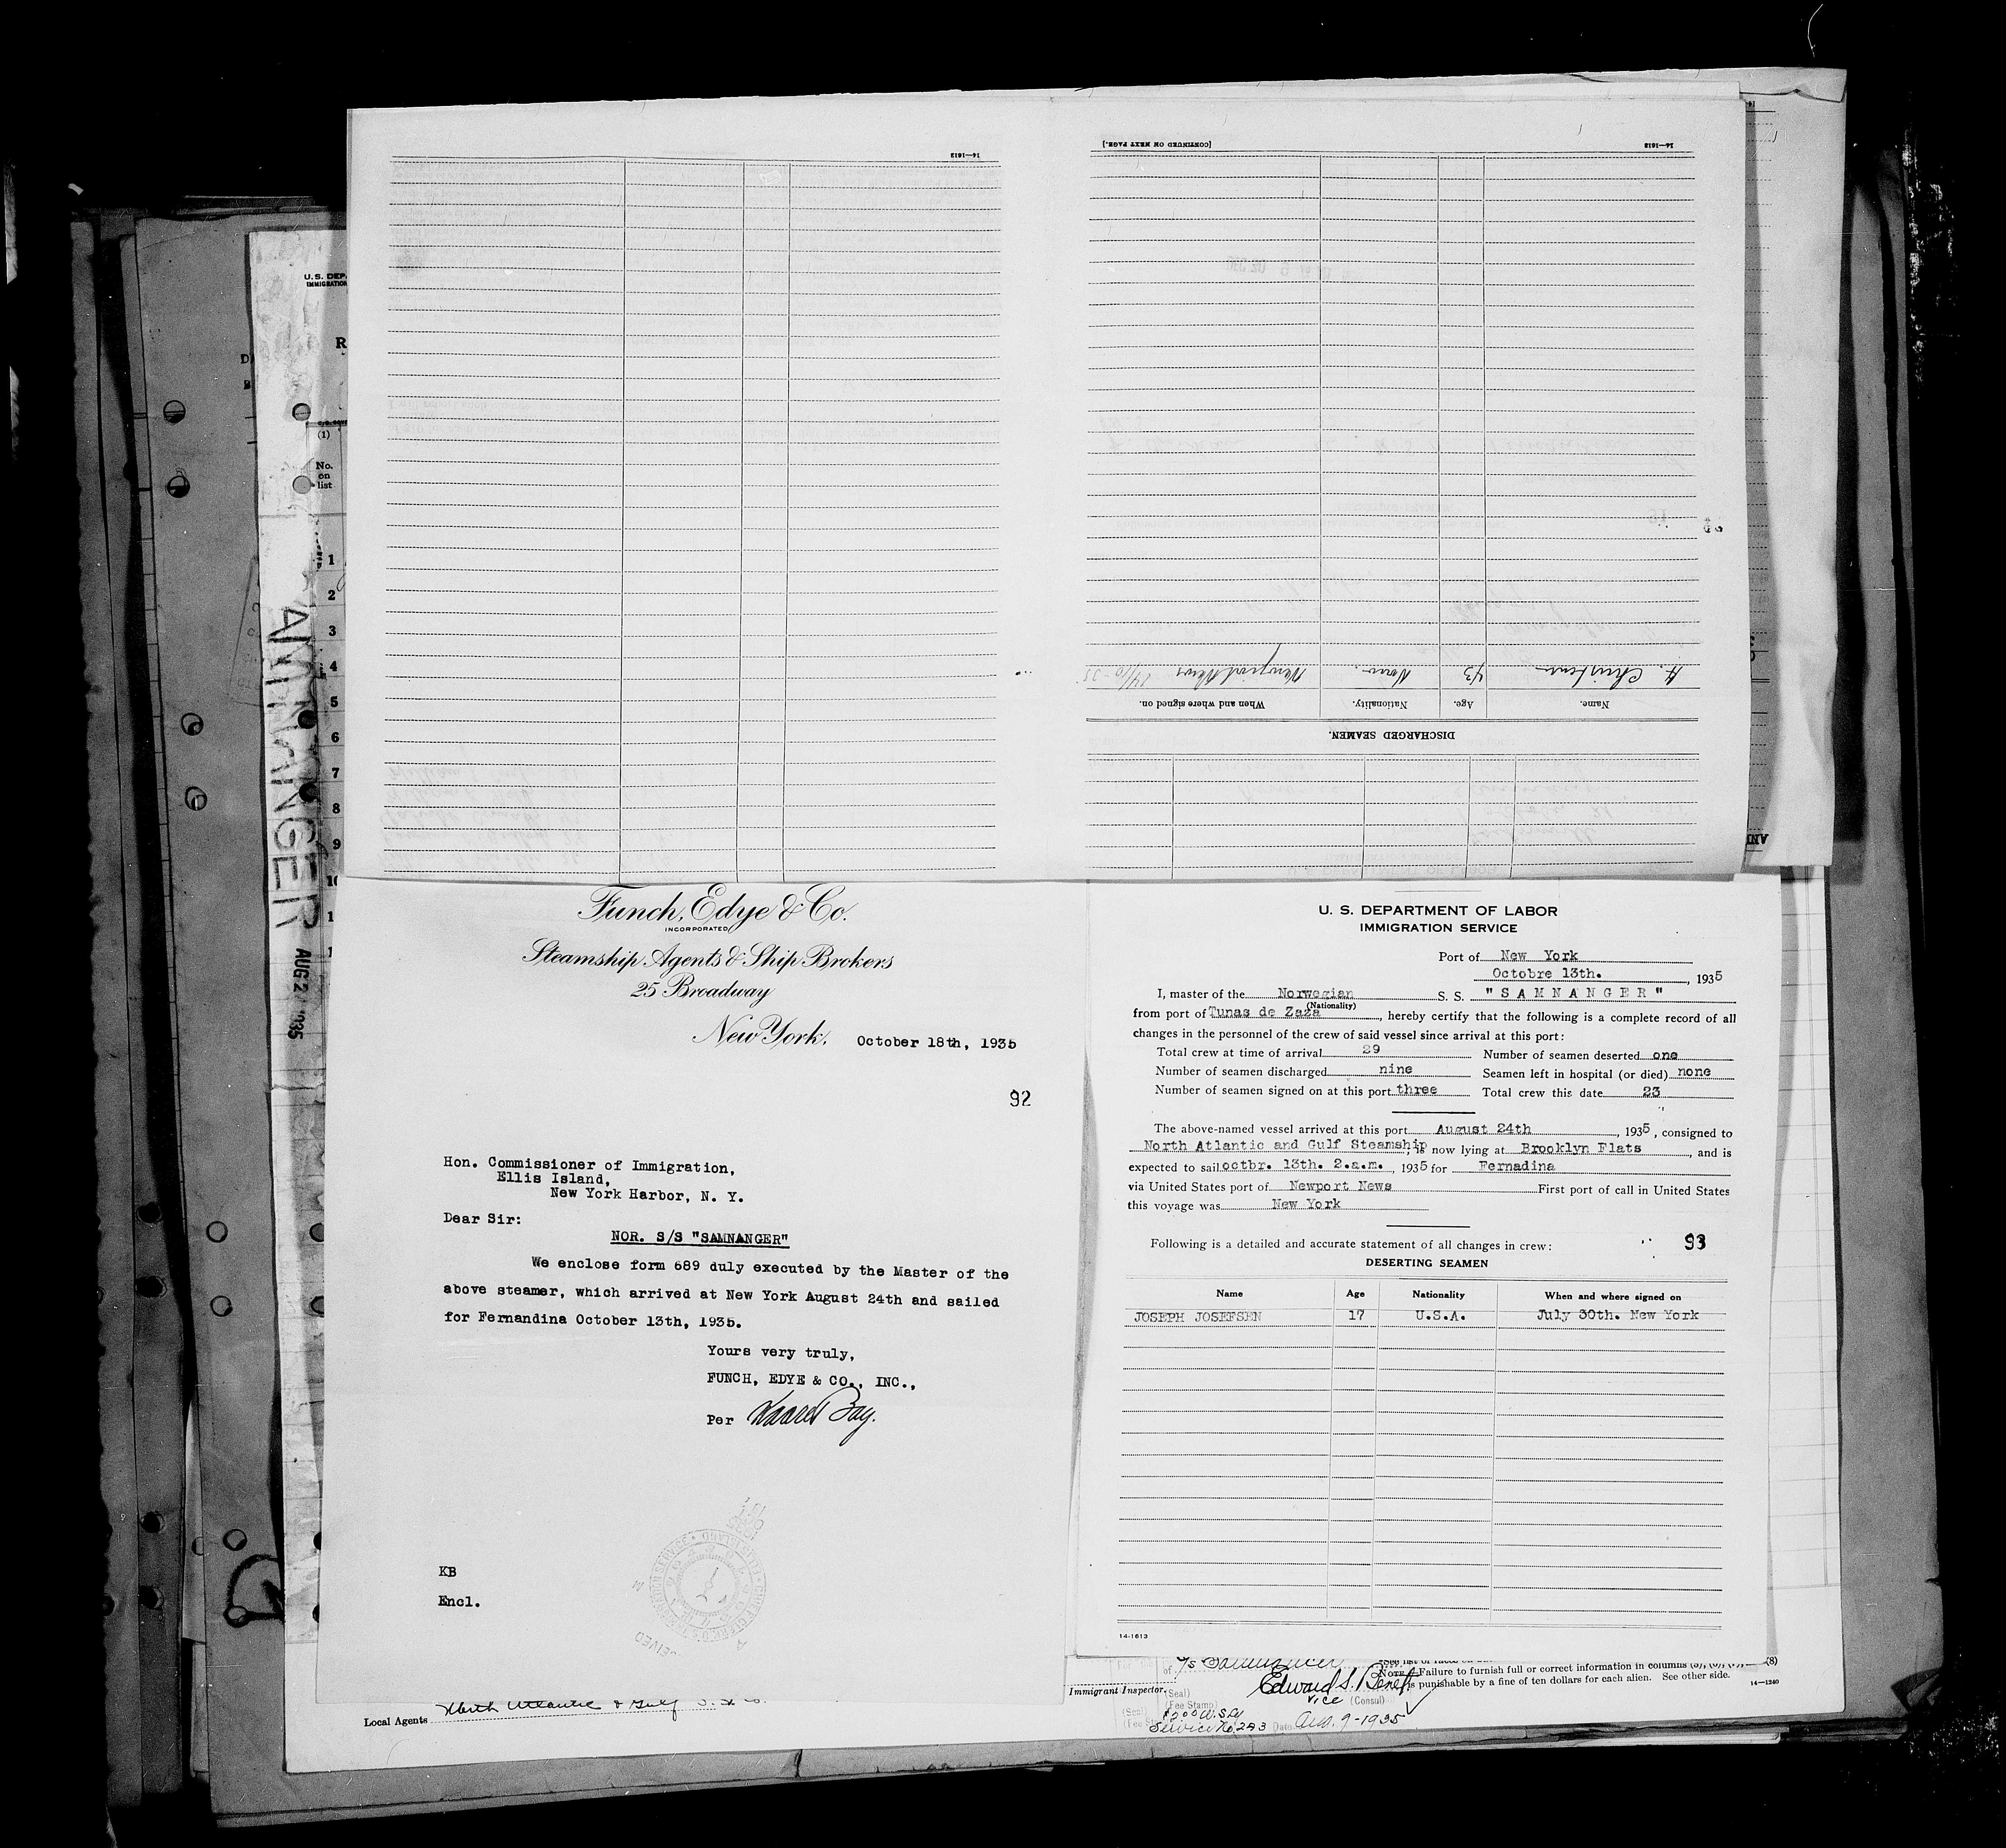 14—1613
[CONTINUED ON NEXT PAGE.]
14—1613
DISCHARGED SEAMEN.
Name. Age. Nationality. When and where signed on.
43 Norw. Newport News
U.S. DEP
IMMIGRATION
(1)
No.
on
list
1
2
3
4
5
6
7
8
9
SAMNANGER
AUG 2 1935
Funch, Edye & Co.
INCORPORATED
Steamship Agents & Ship Brokers
25 Broadway
New York, October 18th, 1935
92
Hon. Commissioner of Immigration,
Ellis Island,
New York Harbor, N. Y.
Dear Sir:
NOR. S/S "SAMNANGER"
We enclose form 689 duly executed by the Master of the
above steamer, which arrived at New York August 24th and sailed
for Fernandina October 13th, 1935.
Yours very truly,
FUNCH, EDYE & CO., INC.,
Per
KB
Encl.
U. S. DEPARTMENT OF LABOR
IMMIGRATION SERVICE
Port of New York
Octobre 13th., 1935
I, master of the Norwegian S. S. "SAMNANGER"
(Nationality)
from port of Tunas de Zaza, hereby certify that the following is a complete record of all
changes in the personnel of the crew of said vessel since arrival at this port:
Total crew at time of arrival 29 Number of seamen deserted one
Number of seamen discharged nine Seamen left in hospital (or died) none
Number of seamen signed on at this port three Total crew this date 23
The above-named vessel arrived at this port August 24th, 1935, consigned to
North Atlantic and Gulf Steamship; is now lying at Brooklyn Flats, and is
expected to sail octbr. 13th. 2.a.m., 1935 for Fernadina
via United States port of Newport News First port of call in United States
this voyage was New York
Following is a detailed and accurate statement of all changes in crew: 93
DESERTING SEAMEN
Name Age Nationality When and where signed on
JOSEPH JOSEFSEN 17 U.S.A. July 30th. New York
14-1613
NOTE.—Failure to furnish full or correct information in columns
is punishable by a fine of ten dollars for each alien. See other side.
14—1240
Immigrant Inspector.
(Seal)
(Fee Stamp)
Edward S. Benet
Vice (Consul)
Service No. 243 Date Aug. 9-1935
Local Agents North Atlantic & Gulf S. S. Co.